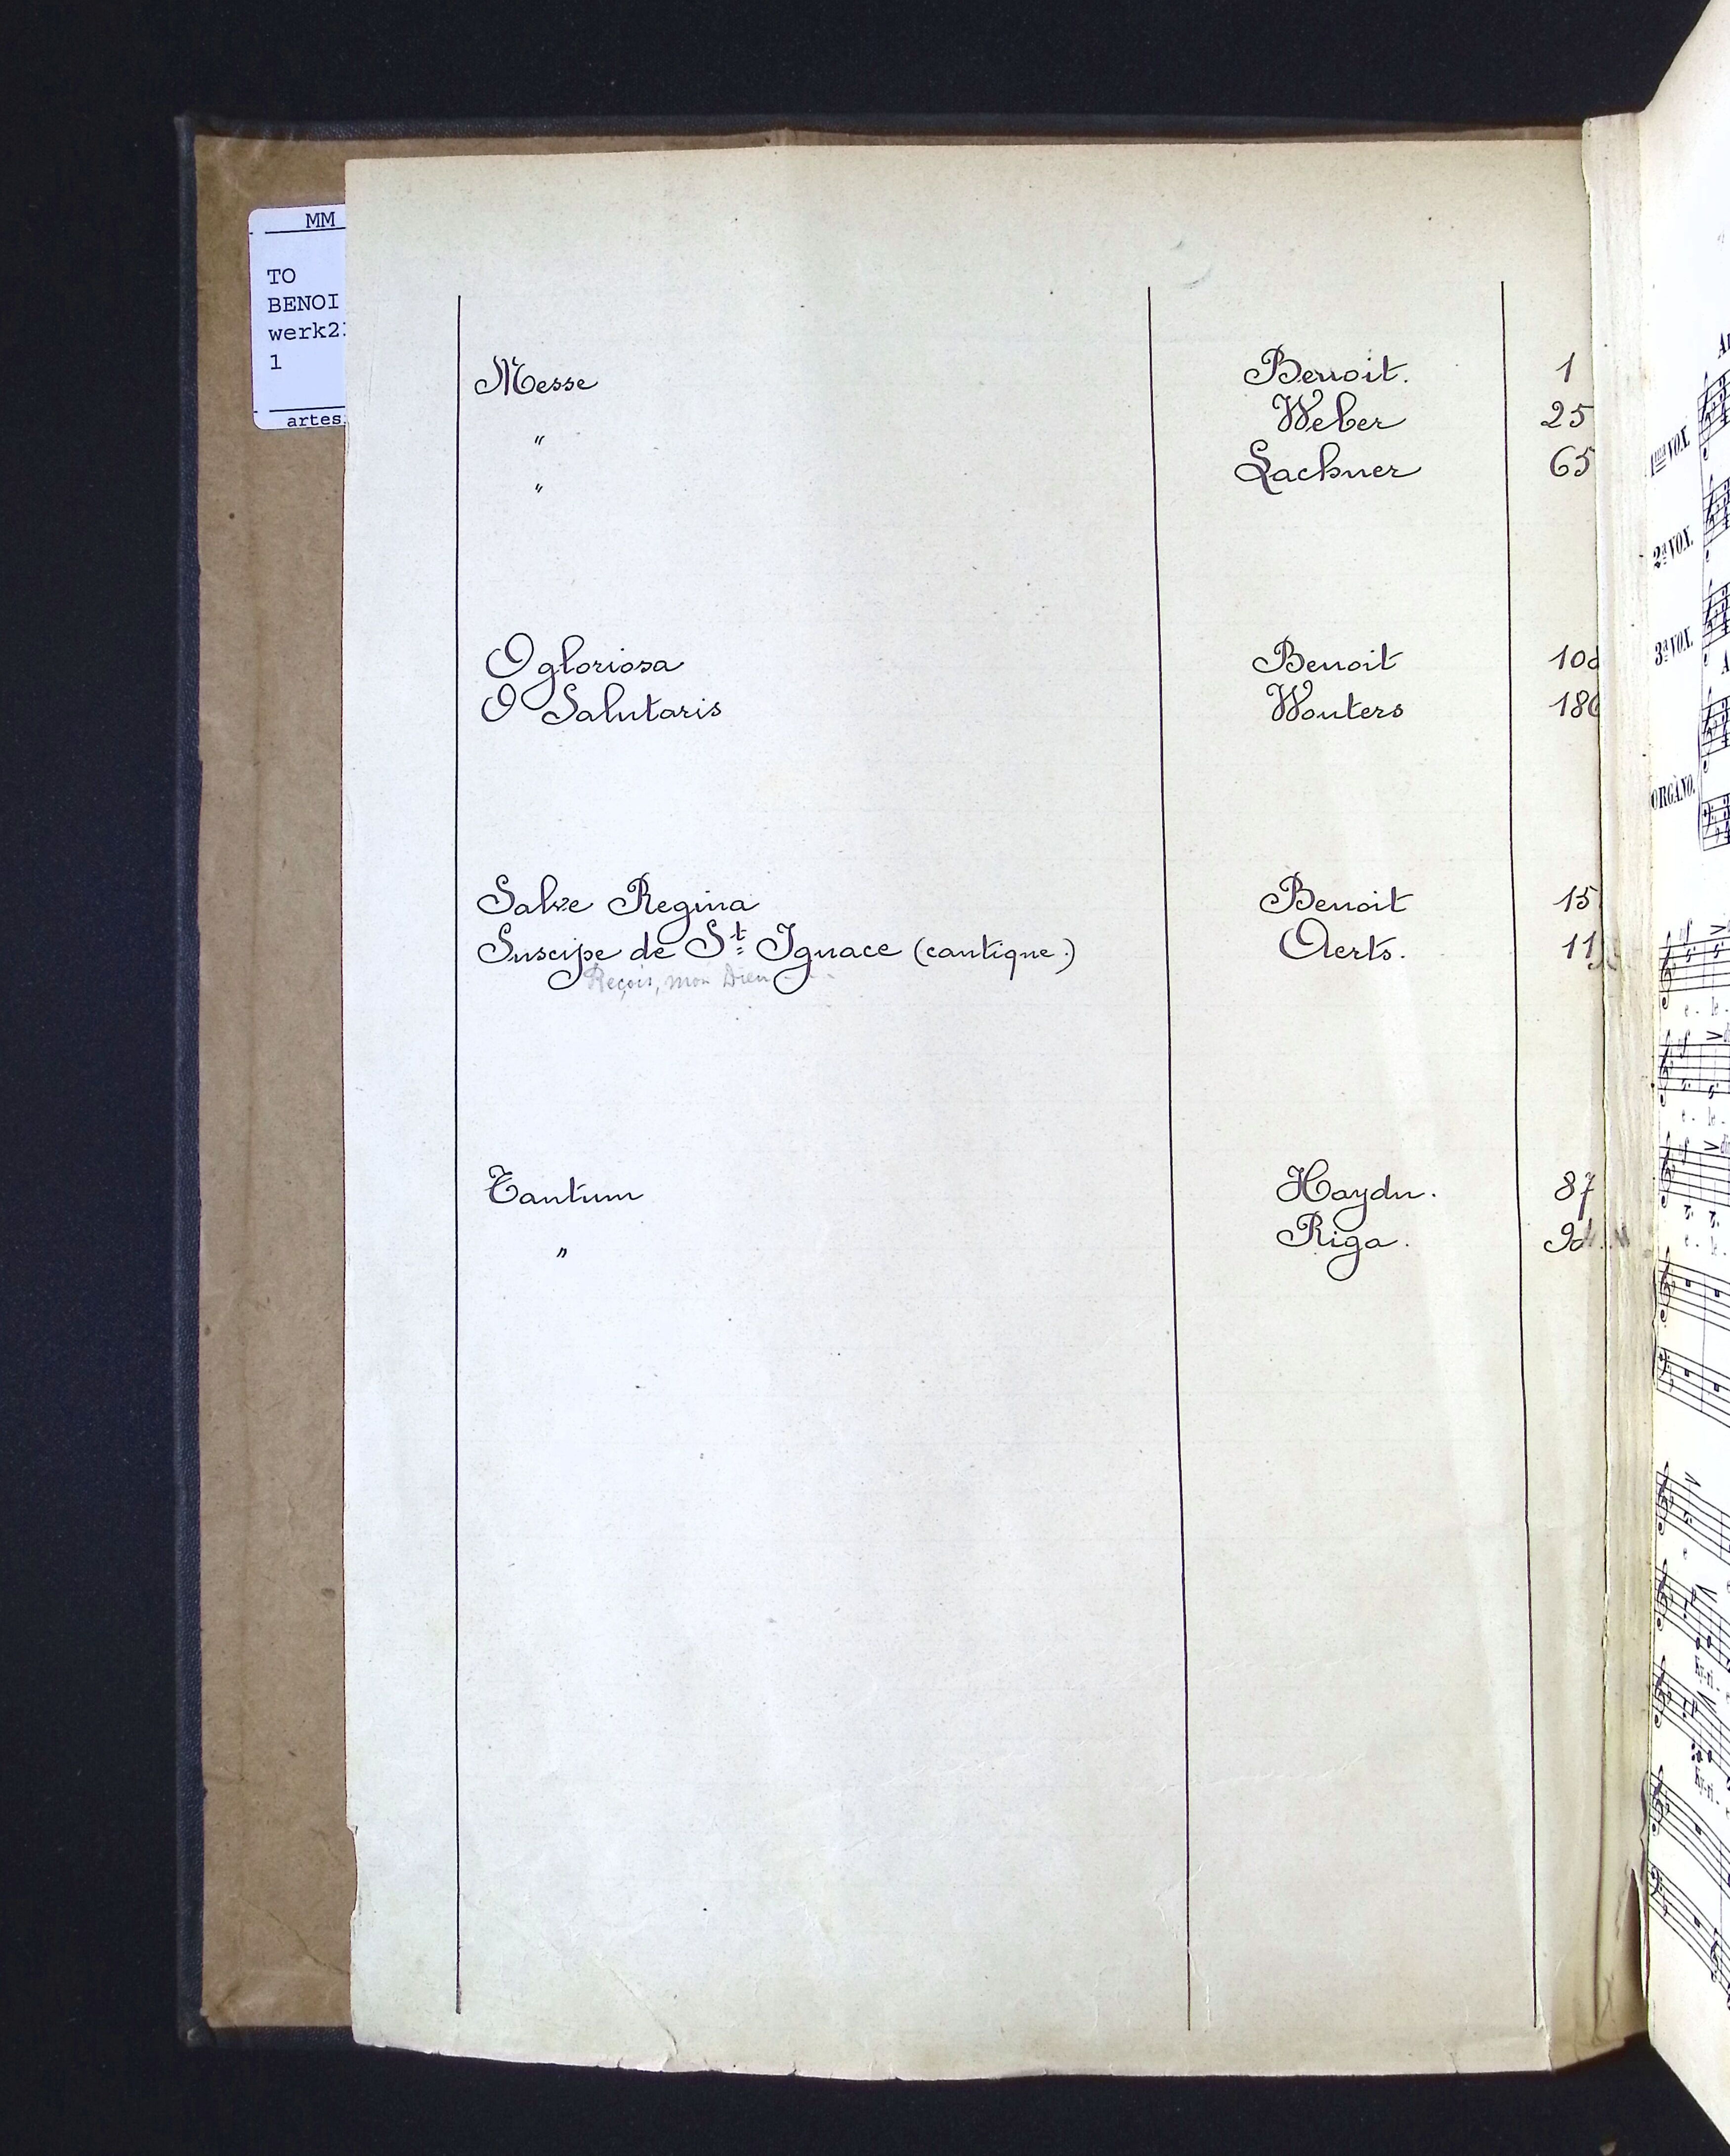 MM
TO
BENOI
werk2
1
artes
Messe Benoit. 1
" Weber 25
" Lachner 65
O gloriosa Benoit 10
O Salutaris Wouters 18
Salve Regina Benoit 15
Suscipe de St Ignace (cantique.) Aerts. 11
Reçois, mon Dieu
Tantum Haydn. 87
" Riga. 9
1ma VOX.
2a VOX.
3a VOX.
ORGANO.
e - le -
e - le -
e - le -
e
Ky-ri -
Ky-ri -